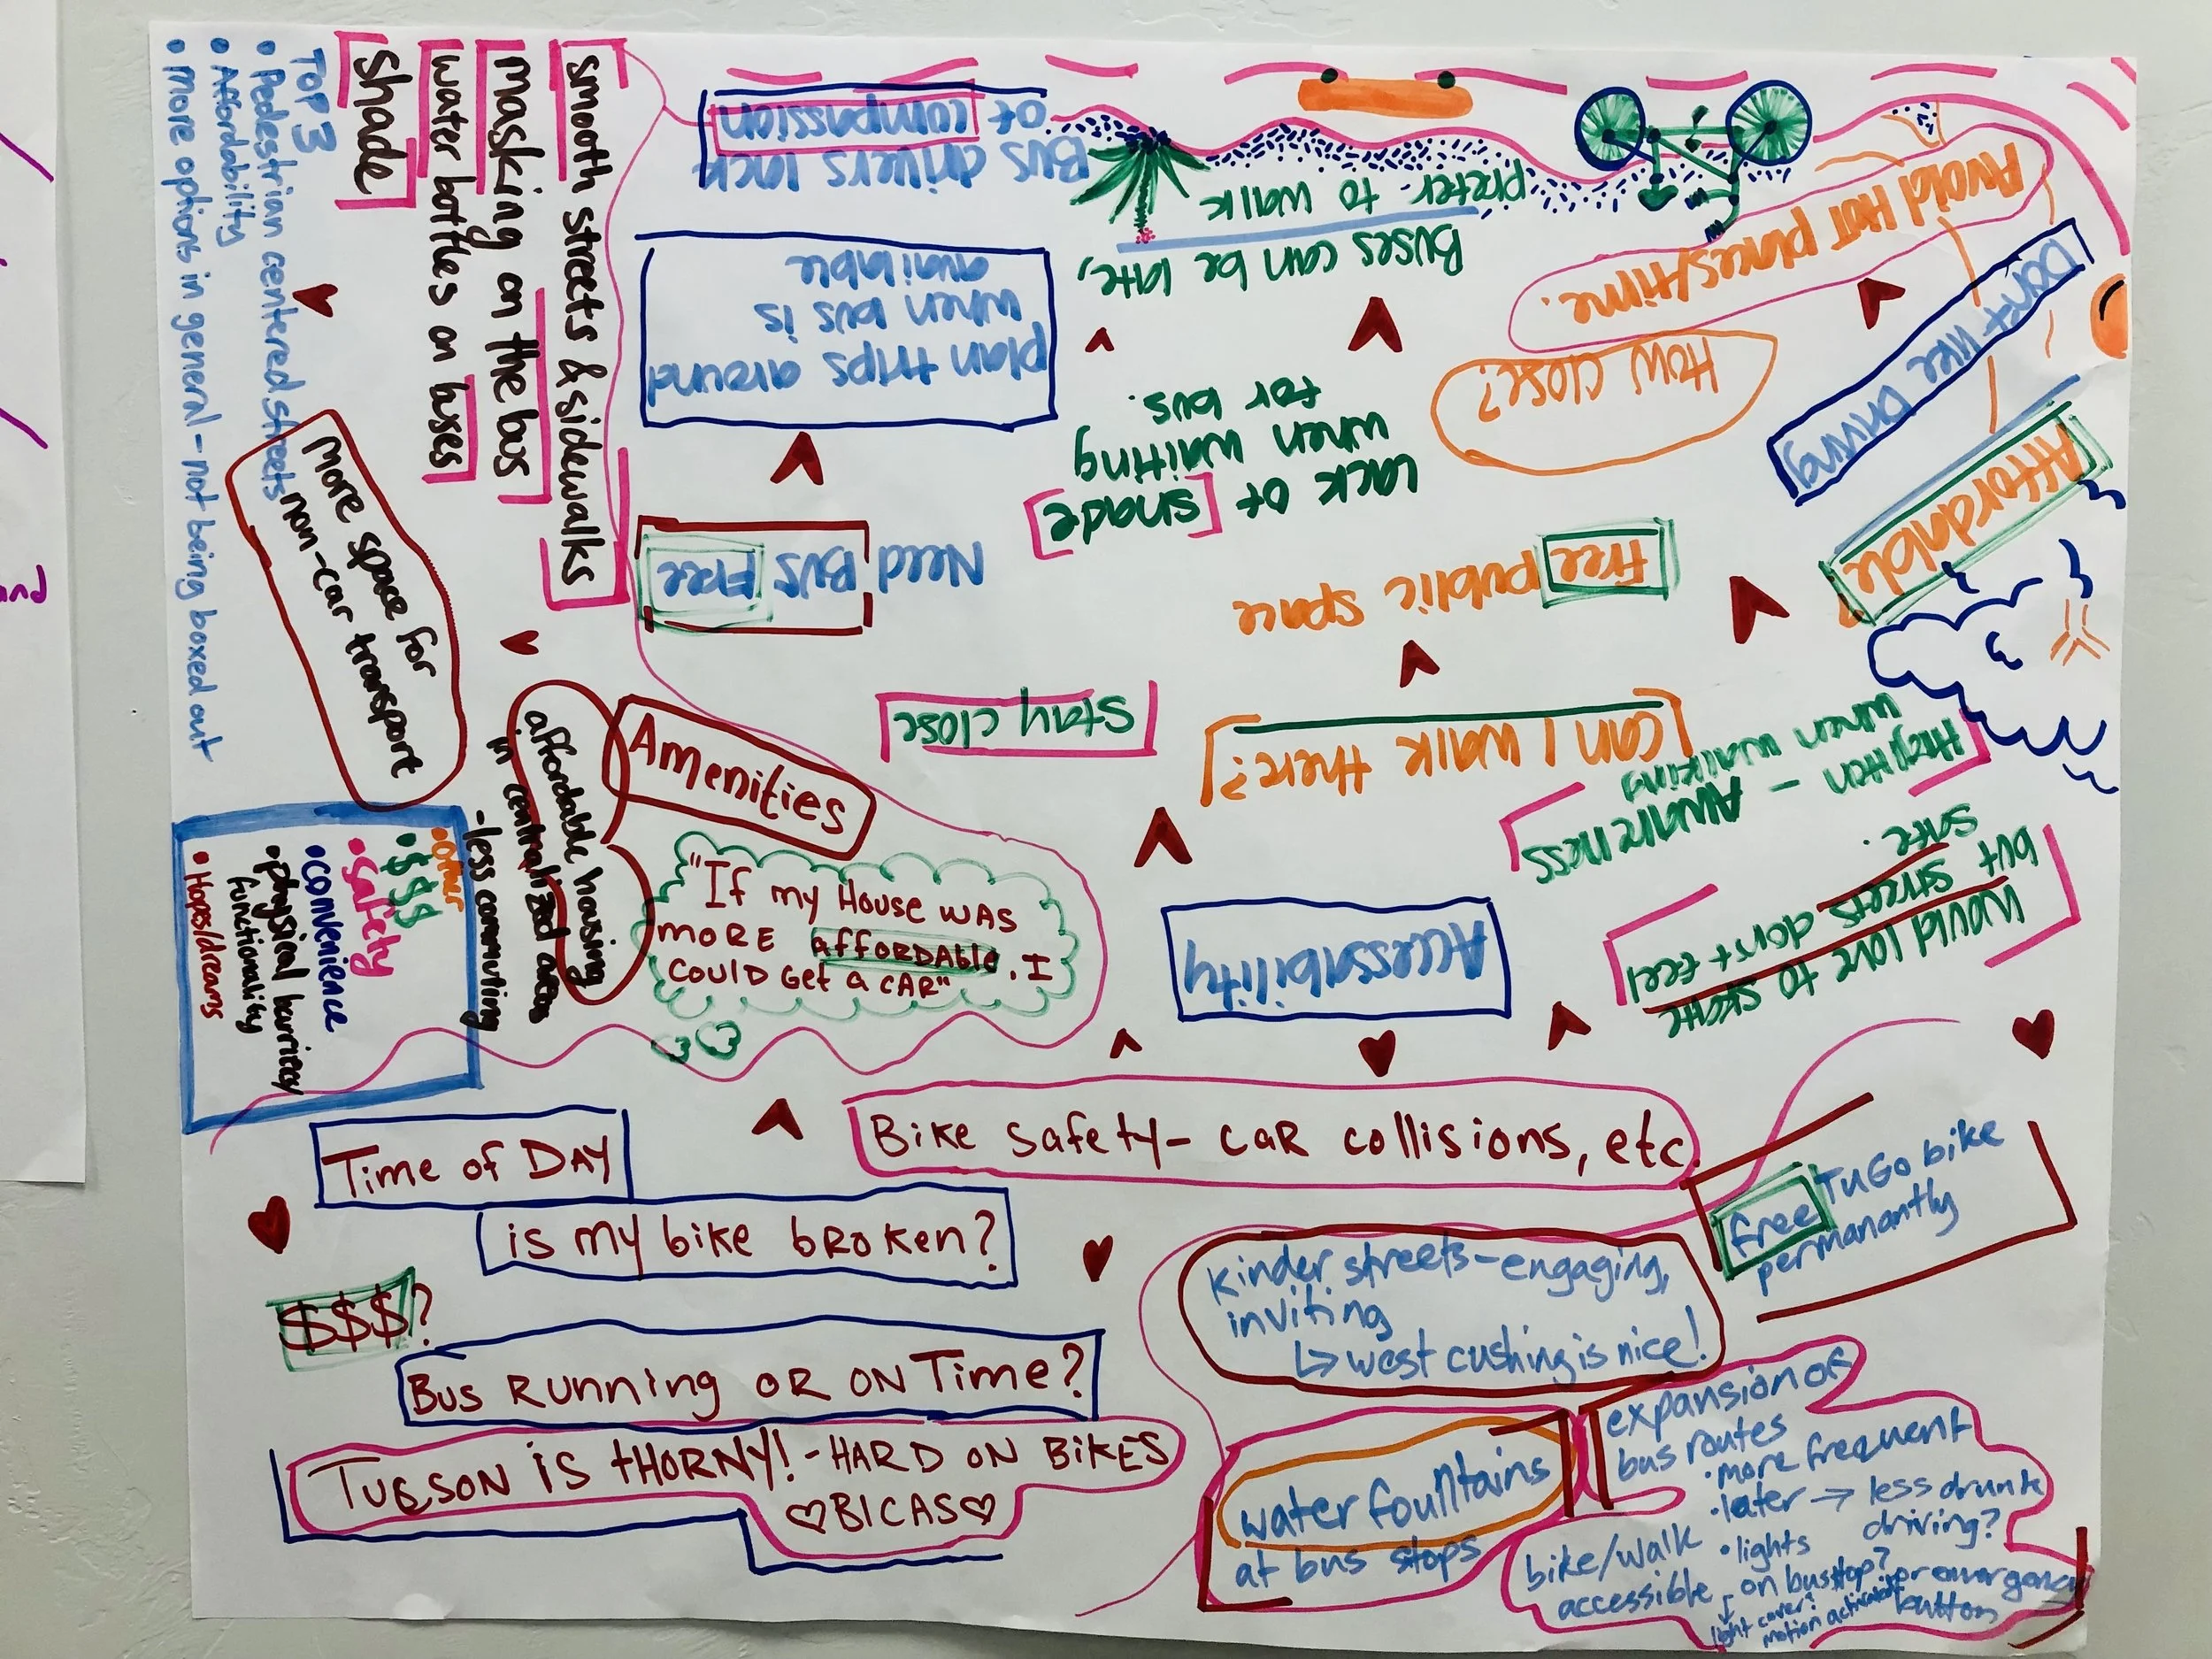 TOP 3
• Pedestrian centered streets
• Affordability
• more options in general - not being boxed out
shade
water bottles on buses
masking on the bus
smooth streets & sidewalks
More space for
non-car transport
Amenities
affordable housing
in centralized areas
- less commuting
"If my House was
more affordable, I
could get a car"
• other
• $$$
• safety
• convenience
• physical barriers/
functionality
• Hopes/dreams
Bus drivers lack
of compassion
plan trips around
when bus is
available
Need Bus Free
Buses can be late,
prefer to walk
Lack of shade
when waiting
for bus.
Stay close
Avoid HOT places/time.
How close?
Don't like Driving
Affordable?
Free public space
Can I walk there?
Highten - Awareness
when walking
Would love to skate
but streets don't feel
safe.
Accessability
Time of Day
is my bike broken?
$$$?
Bus Running or on Time?
Tucson is thorny! - Hard on bikes
♡BICAS♡
Bike Safety - car collisions, etc.
free TuGo bike
permanantly
kinder streets - engaging,
inviting
↳ west cushing is nice!
water fountains
at bus stops
expansion of
bus routes
• more frequent
• later → less drunk
driving?
• lights
on bus stop? or emergency
button
light cover?
motion activated
bike/walk
accessible